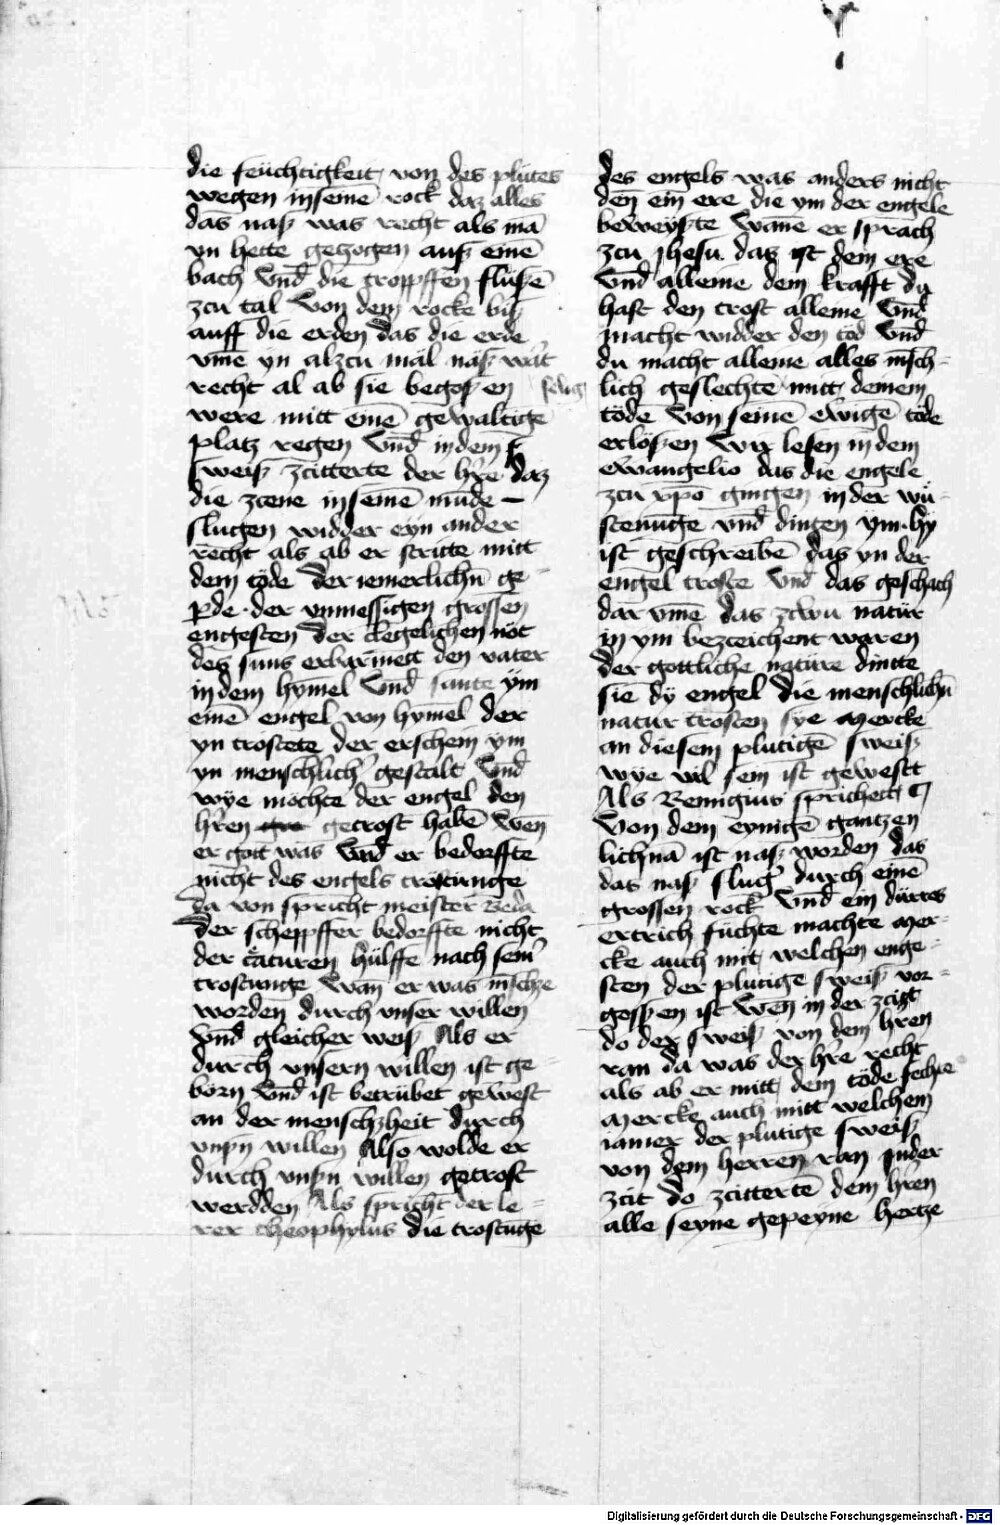 die feüchtigkeit von des plutes
wegen in seinē rock daz alles
das nasz was recht als mā
yn hette gezogen ausz einē
bach Vnd die tropffen fluszē
zcu tal Von dem rocke bisz
auff die erden das die erde
vmē yn alzcu mal nasz wart
recht al ab sie begoszen selig
were mitt einē gewaltigē
platz regen Vnd in dem
sweisz zcitterte der h're daz
die zcene in seinē mude
slugen widder eyn ander
recht als ab er stritte mitt
dem töde Der iemerlichn̄ ge-
perde der vnmessigen grossen
engesten Der clegelichen nöt
des suns erbarmett den vater
in dem hymel Vnd sante ym
einē engel von hymel der
yn trostete der erschein ym
yn menschlich' gestalt Vnd
wye möchte der engel den
h'ren getrost habē Wen
er gott was Vnd er bedorffte
nicht des engels trostunge
Da von spricht meister Beda
Der scheppffer bedorffte nicht
der c'aturen hülffe nach sein'
trostunge Wan er was mēsche
worden durch vnser willen
Vnd gleicher weisz Als er
durch vnsern willen ist ge-
born Vnd ist betrübet gewest
an der menschheit durch
vnsn willen Also wolde er
durch vnsn willen getrost
werdden Als spricht der le-
rer theophylus die trostūge
des engels was anders nicht
den ein ere die ym der engele
beweyste Wanne er sprach
zcu jhesu das ist dem ere
Vnd alleine dein krafft du
hast den trost alleine Vnd
macht widder den töd Vnd
du macht alleine alles mēsch-
lich geslechte mitt deinem
töde Von seinē ewigē töde
erlöszen Wir lesen in dem
ewangelio das die engele
zcu xp̄o gingen in der wü-
stenunge vnd dinten ym hy
ist geschreibē das yn der
engel troste Vnd das geschach
dar vmē das zcwu natür
in ym bezceichent waren
Der gottliche natüre dinte
sie dy engel Die menschlichn̄
natur trosten sye Mercke
an diesem plutigē sweisz
wye vil sein ist gewestt
Als Remigius sprichett
Von dem eynigē gantzen
lichnā ist nasz worden das
das nasz slug durch einē
grossen rock Vnd ein dürres
ertrich füchte machte Mer-
cke auch mit welchen enge-
sten der plutige sweisz vor-
goszen ist Wen in der zcijt
do der sweisz von dem h'ren
ran da was der h're recht
als ab er mitt dem töde fechte
Mercke auch mitt welchem
iamer der plutige sweisz
von dem herren ran In der
zcit do zcittertē dem h'ren
alle seyne gepeyne hertze
Digitalisierung gefördert durch die Deutsche Forschungsgemeinschaft - DFG